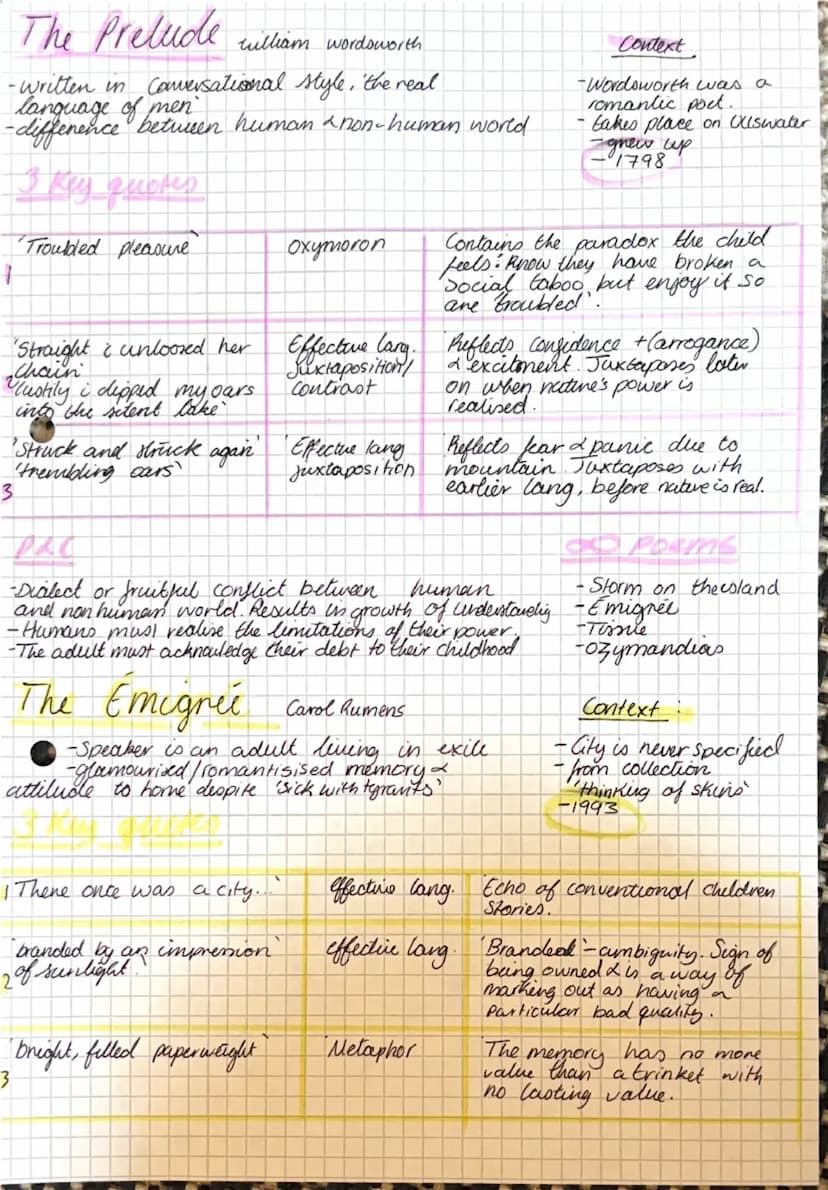 The Prelude William Wordsworth
Context
-written in conversational style, 'the real
language of men'
-difference between human & non-human world
-Wordsworth was a
romantic poet.
- takes place on Ullswater
-grew up
- 1798
3 Key quotes
1
'Troubled pleasure'
oxymoron
Contains the paradox the child
feels: Know they have broken a
social taboo but enjoy it so
are 'troubled'.
2
'Straight i unloosed her
chain'
'lustily i dipped my oars
into the silent lake'
Effective lang.
juxtaposition/
contrast
Reflects confidence + (arrogance)
& excitment. Juxtaposes later
on when nature's power is
realised.
3
'Struck and struck again'
'trembling oars'
Effective lang
juxtaposition
Reflects fear & panic due to
mountain. Juxtaposes with
earlier lang, before nature is real.
P&C
-Dialect or fruitful conflict between human
and non human world. Results in growth of understanding
- Humans must realise the limitations of their power.
-The adult must acknowledge their debt to their childhood
poems
- Storm on the island
- Emigrée
-Tissue
-Ozymandias
The Émigreé Carol Rumens
Context:
-Speaker is an adult living in exile
-glamourized/romantisised memory &
attitude to home despite 'sick with tyrants'
- City is never specified
- from collection
'thinking of skins'
-1993
3 Key quotes
1
'There once was a city...'
effective lang.
Echo of conventional children
stories.
2
'branded by an impression
of sunlight'
effective lang.
'Branded' - ambiguity. Sign of
being owned & is a way of
marking out as having a
particular bad quality.
3
'bright, filled paperweight'
Metaphor
The memory has no more
value than a trinket with
no lasting value.